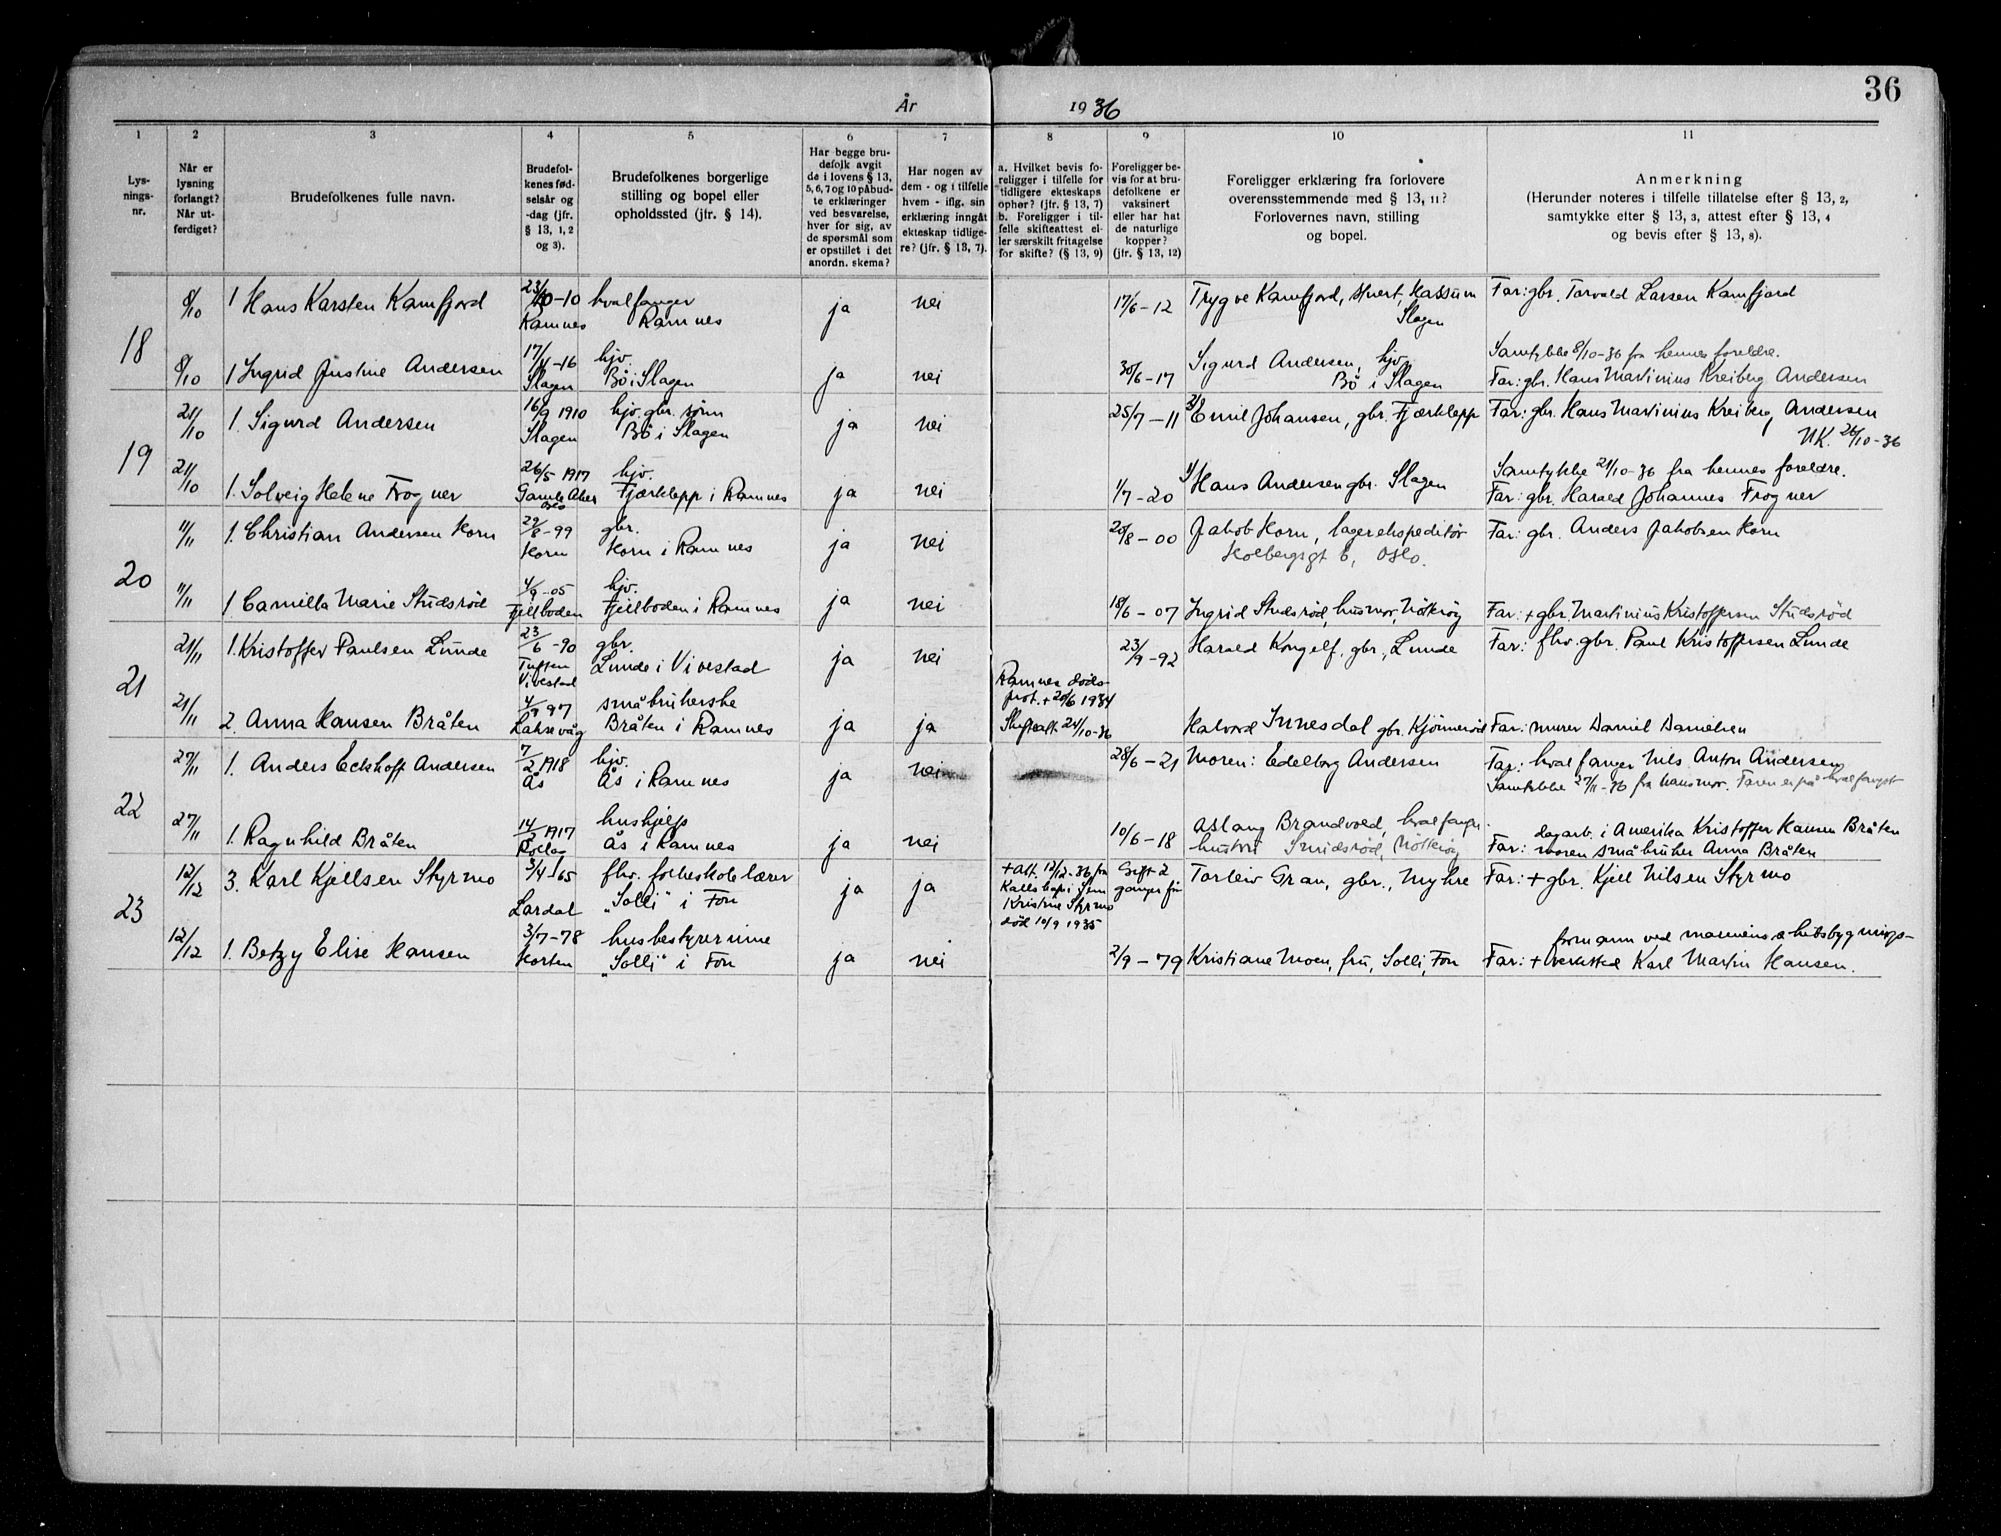 36
År 1936
1 2 3 4 5 6 7 8 9 10 11
Lys-
nings-
nr.
Når er
lysning
forlangt?
Når ut-
ferdiget?
Brudefolkenes fulle navn.
Brudefol-
kenes fød-
selsår og
-dag (jfr.
§ 13, 1, 2
og 3).
Brudefolkenes borgerlige
stilling og bopel eller
opholdssted (jfr. § 14).
Har begge bru-
defolk avgit
de i lovens § 13,
5, 6, 7 og 10 påbud-
te erklæringer
ved besvarelse,
hver for sig, av
de spørsmål som
er opstillet i det
anordn. skema?
Har nogen av
dem - og i tilfelle
hvem - iflg. sin
erklæring inngått
ekteskap tidlige-
re? (jfr. § 13, 7).
a. Hvilket bevis fo-
religger i tilfelle for
tidligere ekteskaps
ophør? (jfr. § 13, 7)
b. Foreligger i til-
felle skifteattest el-
ler særskilt fritagelse
for skifte? (§ 13, 9)
Foreligger be-
vis for at bru-
defolkene er
vaksinert
eller har hat
de naturlige
kopper?
(jfr. § 13, 12)
Foreligger erklæring fra forlovere
overensstemmende med § 13, 11?
Forlovernes navn, stilling
og bopel.
Anmerkning
(Herunder noteres i tilfelle tillatelse efter § 13, 2,
samtykke efter § 13, 3, attest efter § 13, 4
og bevis efter § 13, 8).
18
8/10 1 Hans Karsten Kamfjord 23/10-10 hvalfanger ja nei 17/6-12 Trygve Kamfjord, Hassum Far: gbr. Torvald Larsen Kamfjord
Ramnes Ramnes Slagen
8/10 1 Ingrid Justine Andersen 17/4-16 hjv. ja nei 30/6-17 Sigurd Andersen, hjv. Samtykke 8/10-36 fra hennes foreldre.
Slagen Bö i Slagen Bö i Slagen Far: gbr. Hans Martinius Kreiberg Andersen
19
21/10 1. Sigurd Andersen 16/9 1910 hjv. gbr. sönn ja nei 25/7-11 2/ Emil Johansen, gbr. Fjærklepp Far: gbr. Hans Martinius Kreiberg Andersen
Slagen Bö i Slagen NK. 26/10-36
21/10 1. Solveig Helene Frogner 26/5-1917 hjv. ja nei 1/7-20 1/ Hans Andersen gbr. Slagen Samtykke 21/10-36 fra hennes foreldre.
Gamle Aker Oslo Fjærklepp i Ramnes Far: gbr. Harald Johannes Frogner
20
11/11 1. Christian Andersen Horn 29/8-99 gbr. ja nei 20/8-00 Jakob Horn, lagerekspeditör Far: gbr. Anders Jakobsen Horn
Horn Horn i Ramnes Holbergsgt 6, Oslo.
11/11 1 Camilla Marie Studsröd 4/9-05 hjv. ja nei 18/6-07 Ingrid Studsröd, husmor, Nötkrög Far: + gbr. Martinius Kristoffersen Studsröd
Fjellboden Fjellboden i Ramnes
21
21/11 1. Kristoffer Paulsen Lunde 23/6-90 gbr. ja nei 23/9-92 Harald Kongelf, gbr., Lunde Far: fhv. gbr. Paul Kristoffersen Lunde
Vivestad Lunde i Vivestad
21/11 2. Anna Hansen Bråten småbrukerske ja ja Ramnes döds-
prot. + 20/6 1934
Skifteatt. 24/10-36
Laksevåg Bråten i Ramnes Halvord Innesdal gbr. Kjönneröd Far: murer Daniel Danielsen
22
27/11 1. Anders Eckhoff Andersen 7/2 1918 hjv. ja nei 28/6-21 Moren: Edelborg Andersen Far: hvalfanger Nils Anton Andersen
Ås Ås i Ramnes Samtykke 27/11-36 fra hans mor. Faren er på hvalfangst
27/11 1. Ragnhild Bråten 14/2 1917 hushjelp ja nei 10/6-18 Aslaug Brandvold, hvalfanger- dagarb. i Amerika Kristoffer Hansen Bråten
Rollag Ås i Ramnes hustru Smidsröd, Nötteröy Far: moren småbruker Anna Bråten
23
12/12 3. Karl Kjellsen Styrmo 3/4-65 fhv. folkeskolelærer ja ja + Att. 12/12-36 fra
Kallskap i Sem
Kristine Styrmo
död 10/9 1935
Gift 2
ganger för
Torleiv Gran, gbr., Myhre Far: + gbr. Kjell Nilsen Styrmo
Lardal "Solli" i Fon
12/12 1. Betzy Elise Hansen 3/7-78 husbestyrerinne ja nei 2/9-79 Kristiane Moen, fru, Solli, Fon formann ved marinens
Horten "Solli" i Fon Far: + verksted Karl Martin Hansen.